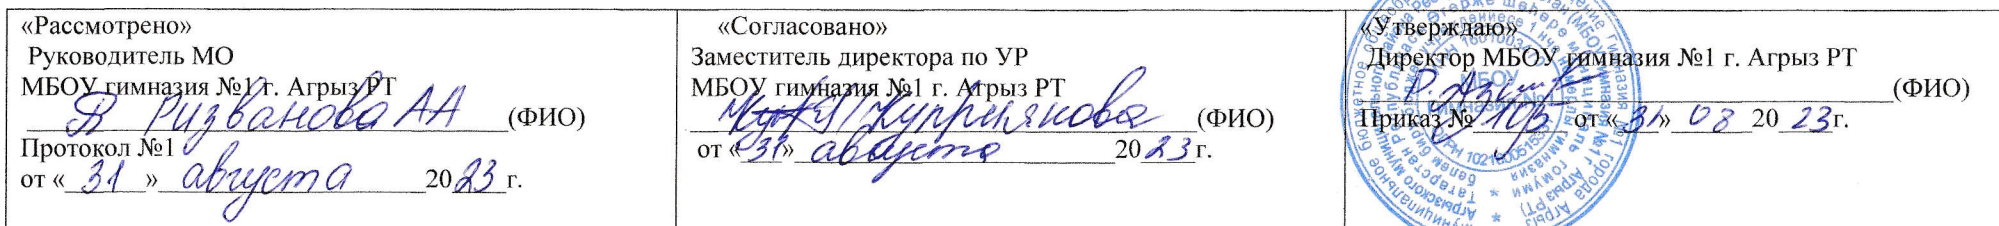 «Рассмотрено»
Руководитель МО
МБОУ гимназия №1 г. Агрыз РТ
Ризванова АА (ФИО)
Протокол №1
от «31» августа 2023 г.
«Согласовано»
Заместитель директора по УР
МБОУ гимназия №1 г. Агрыз РТ
Куприянова (ФИО)
от «31» августа 2023 г.
«Утверждаю»
Директор МБОУ гимназия №1 г. Агрыз РТ
(ФИО)
Приказ № 105 от «31» 08 2023 г.
МБОУ
гимназия №1